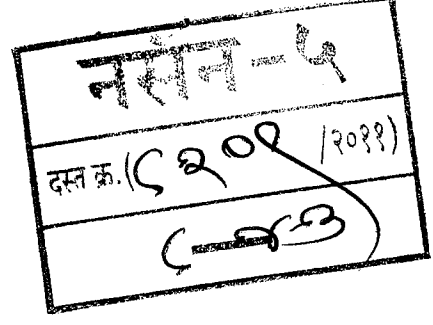 नसन-५
दस्त क्र.(८२०९ /२०११)
८-४३